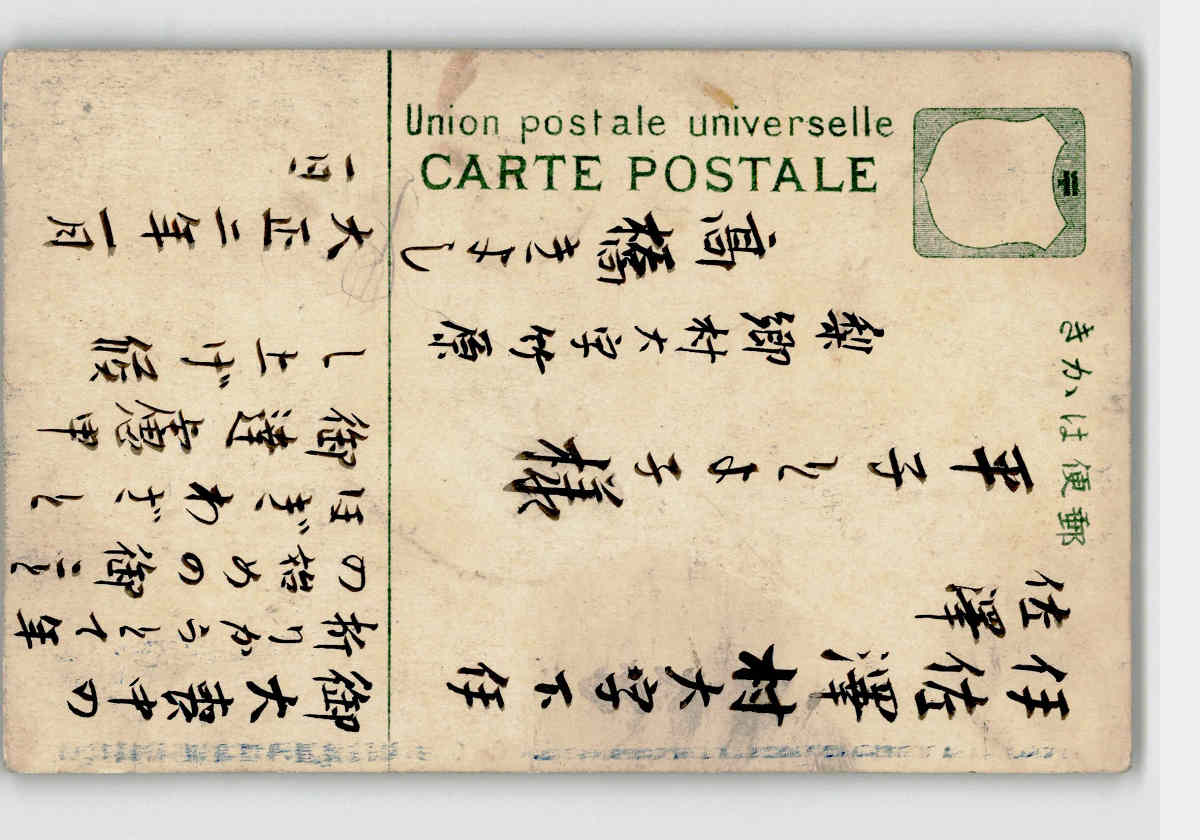 Union postale universelle
CARTE POSTALE
郵便はかき
伊佐澤村大字下伊
佐澤
平子とよ子様
梨郷村大字竹原
高橋きよし
御大喪中の
折りからとて年
の始めの御こと
ほぎわざと
御遠慮申
し上げ候
大正二年一月
一日